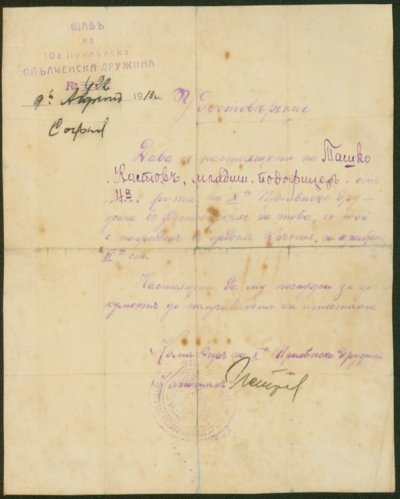 ЩАБЪ
на
10а Прилѣпска
ОПЪЛЧЕНСКА ДРУЖИНА
№ 422
9й Априлий 1913 г.
София
Удостовѣрение
Дава се настоящето на Ташко
Костовъ, младши подофицеръ отъ
4та рота на Xта Прилѣпска дру-
жина въ за това, че той
е награденъ съ ордена за храбр.
ст.
Настоящето да му послужи за до-
кументъ до
Командиръ на Xта Прилѣпска дружина
Капитанъ